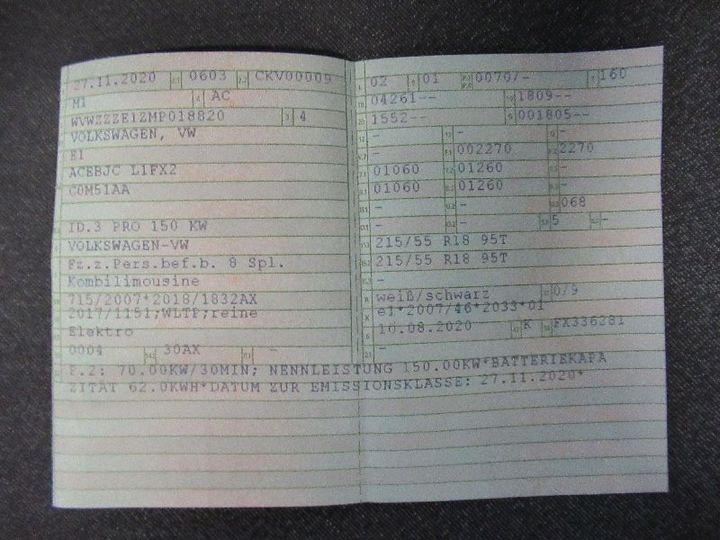 27.11.2020 0603 CKV00009
M1 AC
WVWZZZE1ZMP018820 4
VOLKSWAGEN, VW
E1
ACEBJC L1FX2
C0M51AA
ID.3 PRO 150 KW
VOLKSWAGEN-VW
Fz.z.Pers.bef.b. 8 Spl.
Kombilimousine
715/2007*2018/1832AX
2017/1151;WLTP;reine
Elektro
0004 30AX -
02 01 0070/- 160
04261-- 1809--
1552-- 001805--
- - -
- 002270 2270
01060 01260 -
01060 01260 -
- - 068
- - 5 -
215/55 R18 95T
215/55 R18 95T
-
weiß/schwarz 0/9
e1*2007/46*2033*01
10.08.2020 K FX336281
-
P.2: 70.00KW/30MIN; NENNLEISTUNG 150.00KW*BATTERIEKAPA
ZITÄT 62.0KWH*DATUM ZUR EMISSIONSKLASSE: 27.11.2020*